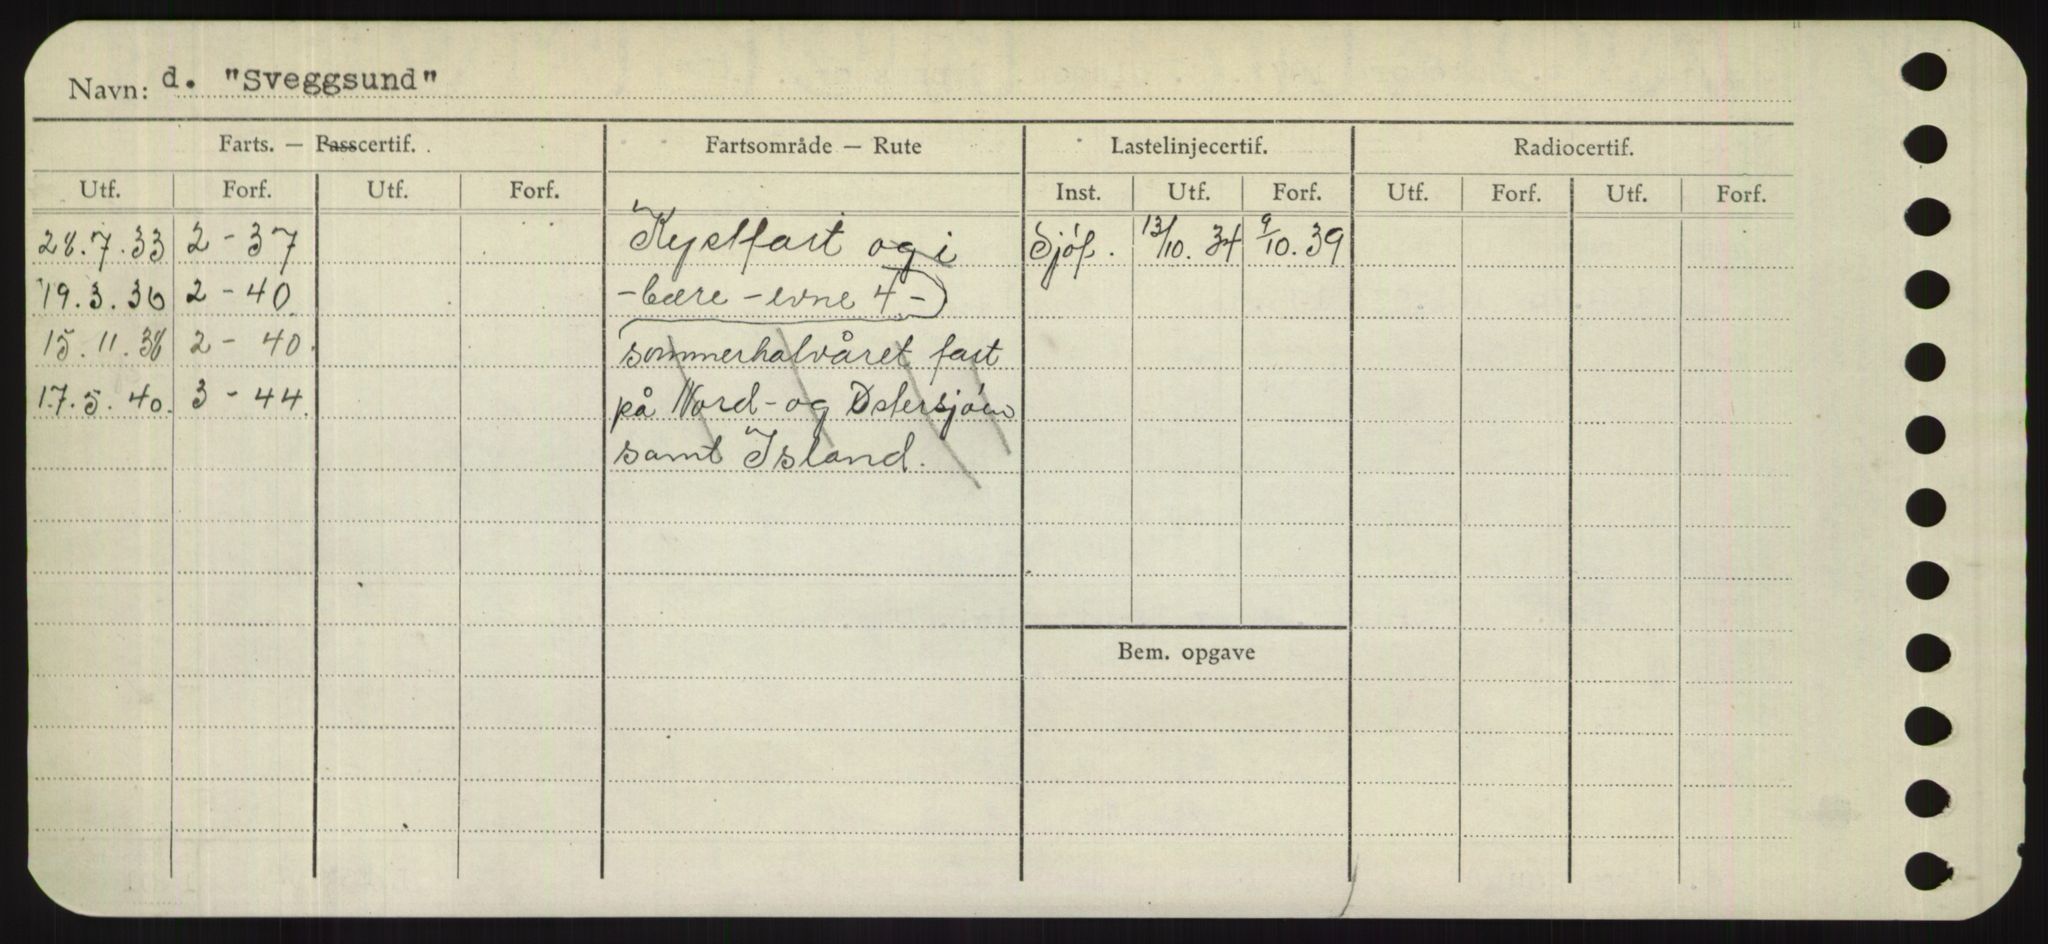 Navn: d. "Sveggsund"
Farts. — Passcertif. Fartsområde — Rute Lastelinjecertif. Radiocertif.
Utf. Forf. Utf. Forf. Inst. Utf. Forf. Utf. Forf. Utf. Forf.
28.7.33 2-37 Kystfart og i Sjöf. 13/10.34 9/10.39
19.3.36 2-40 -bære-evne 4-
15.11.38 2-40. sommerhalvåret fart
17.5.40. 3-44. på Nord- og Østersjöen
samt Island.
Bem. opgave